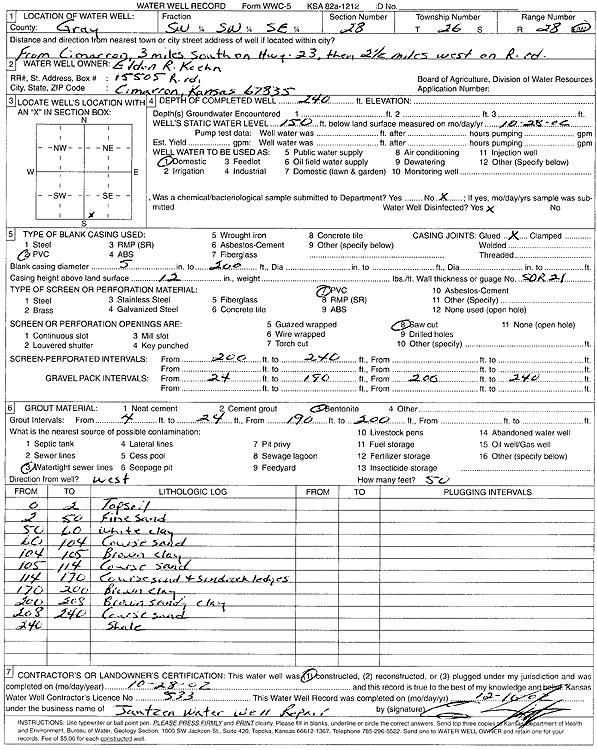 WATER WELL RECORD Form WWC-5 KSA 82a-1212 ID No.
1 LOCATION OF WATER WELL: Fraction Section Number Township Number Range Number
County: Gray SW ¼ SW ¼ SE ¼ 28 T 26 S R 28 E/W
Distance and direction from nearest town or city street address of well if located within city?
From Cimarron, 3 miles South on Hwy. 23, then 2½ miles west on R. rd.
2 WATER WELL OWNER: Eldon R. Koehn
RR#, St. Address, Box # : 15505 R. rd. Board of Agriculture, Division of Water Resources
City, State, ZIP Code : Cimarron, Kansas 67835 Application Number:
3 LOCATE WELL'S LOCATION WITH AN "X" IN SECTION BOX:
N
NW NE
W E
SW SE
X
S
4 DEPTH OF COMPLETED WELL 240 ft. ELEVATION:
Depth(s) Groundwater Encountered 1 ft. 2 ft. 3 ft.
WELL'S STATIC WATER LEVEL 150 ft. below land surface measured on mo/day/yr 10-28-02
Pump test data: Well water was ft. after hours pumping gpm
Est. Yield gpm: Well water was ft. after hours pumping gpm
WELL WATER TO BE USED AS: 5 Public water supply 8 Air conditioning 11 Injection well
1 Domestic 3 Feedlot 6 Oil field water supply 9 Dewatering 12 Other (Specify below)
2 Irrigation 4 Industrial 7 Domestic (lawn & garden) 10 Monitoring well
Was a chemical/bacteriological sample submitted to Department? Yes No X ; If yes, mo/day/yrs sample was submitted Water Well Disinfected? Yes X No
5 TYPE OF BLANK CASING USED: 5 Wrought iron 8 Concrete tile CASING JOINTS: Glued X Clamped
1 Steel 3 RMP (SR) 6 Asbestos-Cement 9 Other (specify below) Welded
2 PVC 4 ABS 7 Fiberglass Threaded
Blank casing diameter 5 in. to 200 ft., Dia in. to ft., Dia in. to ft.
Casing height above land surface 12 in., weight lbs./ft. Wall thickness or guage No. SDR 21
TYPE OF SCREEN OR PERFORATION MATERIAL: 7 PVC 10 Asbestos-Cement
1 Steel 3 Stainless Steel 5 Fiberglass 8 RMP (SR) 11 Other (Specify)
2 Brass 4 Galvanized Steel 6 Concrete tile 9 ABS 12 None used (open hole)
SCREEN OR PERFORATION OPENINGS ARE: 5 Guazed wrapped 8 Saw cut 11 None (open hole)
1 Continuous slot 3 Mill slot 6 Wire wrapped 9 Drilled holes
2 Louvered shutter 4 Key punched 7 Torch cut 10 Other (specify) ft.
SCREEN-PERFORATED INTERVALS: From 200 ft. to 240 ft., From ft. to ft.
From ft. to ft., From ft. to ft.
GRAVEL PACK INTERVALS: From 24 ft. to 190 ft., From 200 ft. to 240 ft.
From ft. to ft., From ft. to ft.
6 GROUT MATERIAL: 1 Neat cement 2 Cement grout 3 Bentonite 4 Other
Grout Intervals: From 4 ft. to 24 ft. From 190 ft. to 200 ft. From ft. to ft.
What is the nearest source of possible contamination: 10 Livestock pens 14 Abandoned water well
1 Septic tank 4 Lateral lines 7 Pit privy 11 Fuel storage 15 Oil well/Gas well
2 Sewer lines 5 Cess pool 8 Sewage lagoon 12 Fertilizer storage 16 Other (specify below)
3 Watertight sewer lines 6 Seepage pit 9 Feedyard 13 Insecticide storage
Direction from well? West How many feet? 50
FROM TO LITHOLOGIC LOG FROM TO PLUGGING INTERVALS
0 2 Topsoil
2 50 Fine sand
50 60 White clay
60 104 Course sand
104 105 Brown clay
105 114 Course sand
114 170 Course sand & sandrock ledges
170 200 Brown clay
200 208 Brown sandy clay
208 240 Course sand
240 Shale
7 CONTRACTOR'S OR LANDOWNER'S CERTIFICATION: This water well was (1) constructed, (2) reconstructed, or (3) plugged under my jurisdiction and was
completed on (mo/day/year) 10-28-02 and this record is true to the best of my knowledge and belief. Kansas
Water Well Contractor's Licence No 533 This Water Well Record was completed on (mo/day/yr)
under the business name of Jantzen Water Well Repair by (signature)
INSTRUCTIONS: Use typewriter or ball point pen. PLEASE PRESS FIRMLY and PRINT clearly. Please fill in blanks, underline or circle the correct answers. Send top three copies to Kansas Department of Health
and Environment, Bureau of Water, Geology Section, 1000 SW Jackson St., Suite 420, Topeka, Kansas 66612-1367. Telephone 785-296-5522. Send one to WATER WELL OWNER and retain one for your
records. Fee of $5.00 for each constructed well.